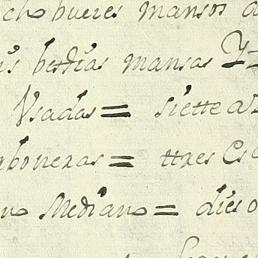 ch bueies mansos
bestias mansas Y=
Vsadas = siette
boneras = ttres Es
Mediano = dies o